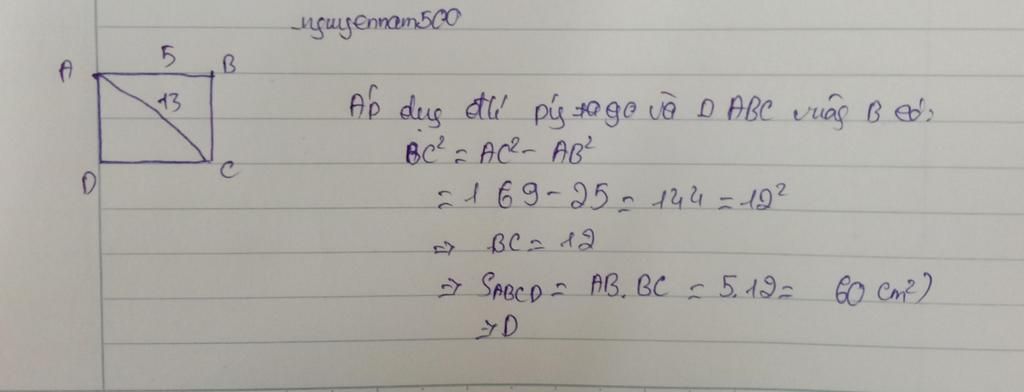 nguyennam500
5
A
B
13
D
C
Áp dụg đlí pýtago và D ABC vuôg B có:
BC² = AC² - AB²
= 169 - 25 = 144 = 12²
⇒ BC = 12
⇒ SABCD = AB.BC = 5.12 = 60 cm²)
⇒ D